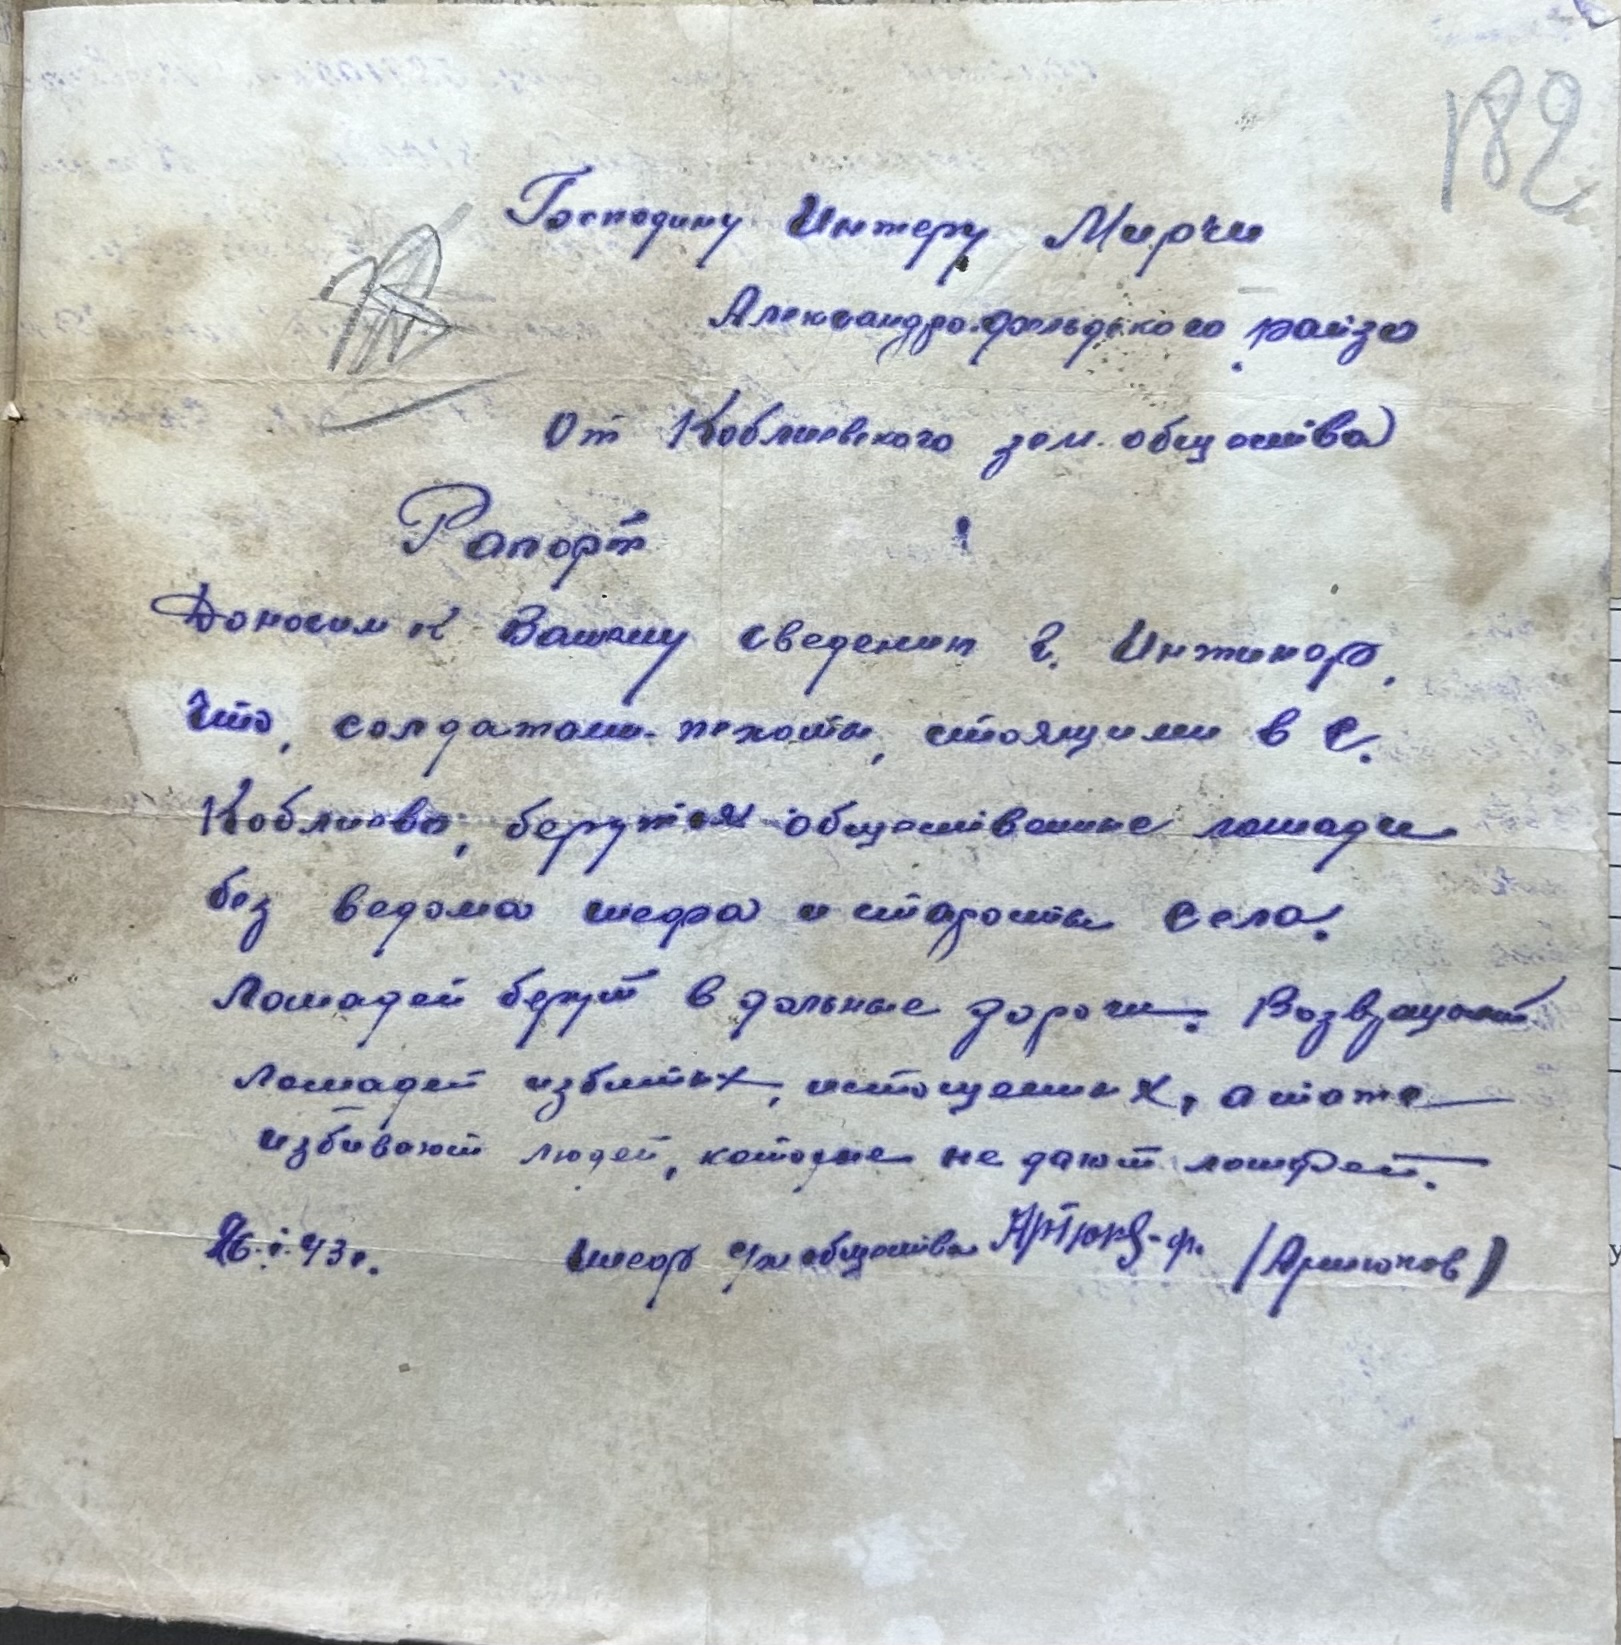 182
Господину Инжеру Мирчи
Александрофельдького райзо
От Коблиевского зем. общества
Рапорт
Доносим к Вашему сведению г. Инжинер,
что, солдатами пехоты, стоящими в с.
Коблиево, берутся общественные лошади
без ведома шефа и старосты села.
Лошадей берут в дальные дороги. Возвращают
лошадей избитых, истощенных, а также
избивают людей, которые не дают лошадей.
26.I.43г. Шеф общества (Артюхов)